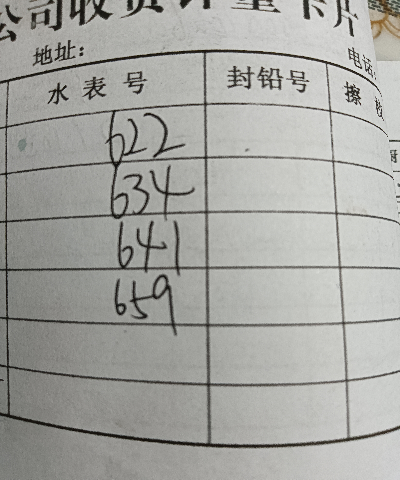 公司收费计量卡片
地址：
电话：
水表号 封铅号 擦
622
634
641
659